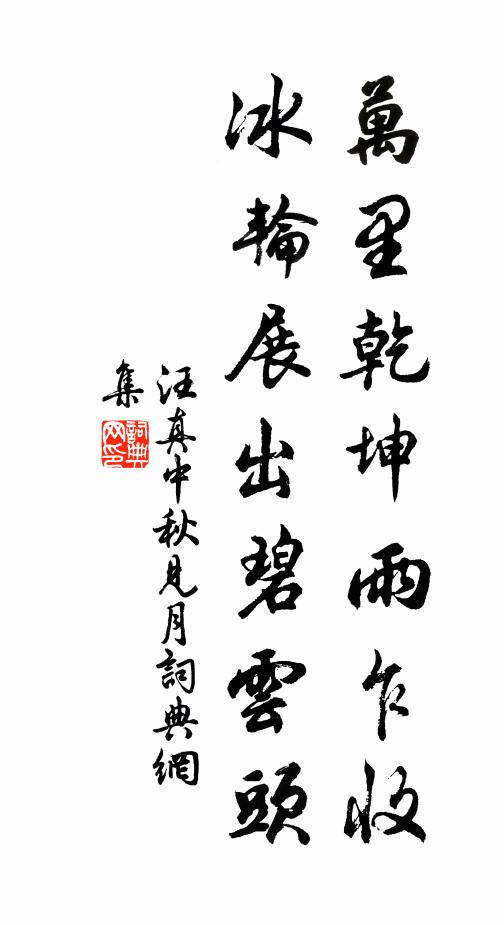 萬里乾坤雨乍收
冰輪展出碧雲頭
汪真中秋見月詞典網
集
詞典
网印